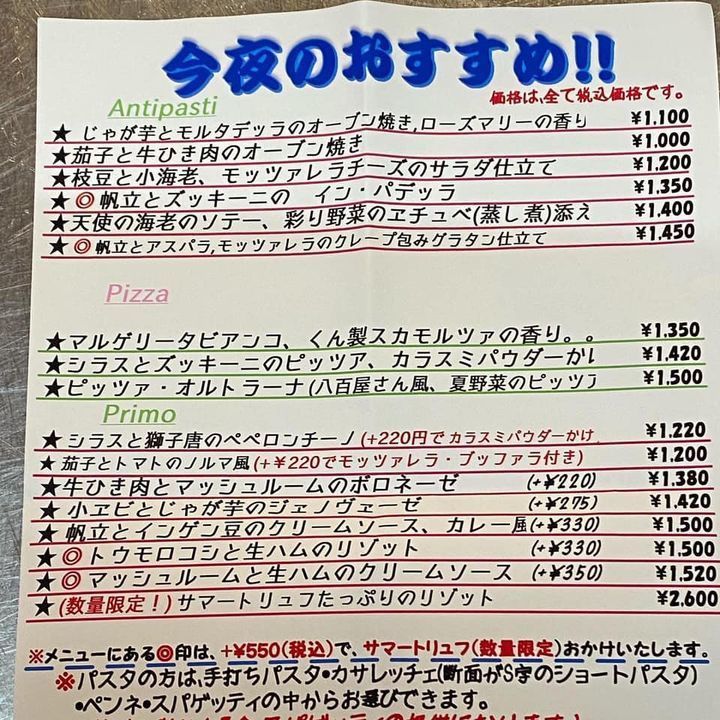 今夜のおすすめ!!
価格は、全て税込価格です。
Antipasti
★じゃが芋とモルタデッラのオーブン焼き,ローズマリーの香り ¥1.100
★茄子と牛ひき肉のオーブン焼き ¥1.000
★枝豆と小海老、モッツァレラチーズのサラダ仕立て ¥1.200
★◎帆立とズッキーニの イン・パデッラ ¥1.350
★天使の海老のソテー、彩り野菜のヱチュベ(蒸し煮)添え ¥1.400
★◎帆立とアスパラ,モッツァレラのクレープ包みグラタン仕立て ¥1.450
Pizza
★マルゲリータビアンコ、くん製スカモルツァの香り。。 ¥1.350
★シラスとズッキーニのピッツア、カラスミパウダーかけ ¥1.420
★ピッツァ・オルトラーナ(八百屋さん風、夏野菜のピッツァ ¥1.500
Primo
★シラスと獅子唐のペペロンチーノ(+220円でカラスミパウダーかけ ¥1.220
★茄子とトマトのノルマ風(+¥220でモッツァレラ・ブッファラ付き) ¥1.200
★牛ひき肉とマッシュルームのボロネーゼ (+¥220) ¥1.380
★小ヱビとじゃが芋のジェノヴェーゼ (+¥275) ¥1.420
★帆立とインゲン豆のクリームソース、カレー風(+¥330) ¥1.500
★◎トウモロコシと生ハムのリゾット (+¥330) ¥1.500
★◎マッシュルームと生ハムのクリームソース (+¥350) ¥1.520
★(数量限定!)サマートリュフたっぷりのリゾット ¥2.600
※メニューにある◎印は、+¥550(税込)で、サマートリュフ(数量限定)おかけいたします。
※パスタの方は,手打ちパスタ•カサレッチェ(断面がS字のショートパスタ)
•ペンネ•スパゲッティの中からお選びできます。